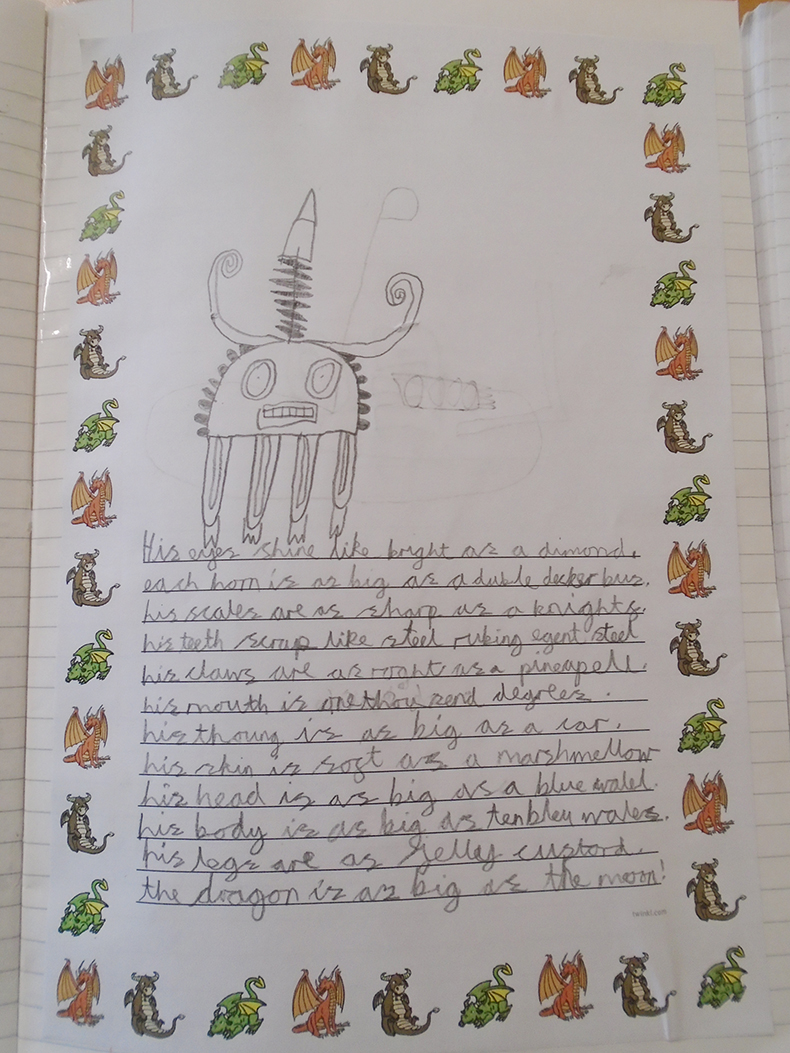 His eyes shine like bright as a dimond.
each horn is as big as a duble decker bus.
his scales are as sharp as a knights.
his teeth scrap like steel ruking egent steel
his claws are as as a pineapell.
his mouth is one thou zend degrees.
his thoung is as big as a car.
his skin is sogt as a marshmellow
his head is as big as a blue walel.
his body is as big as ten bley wales.
his legs are as Jelly custard.
the dragon is as big as the moon!
twinkl.com